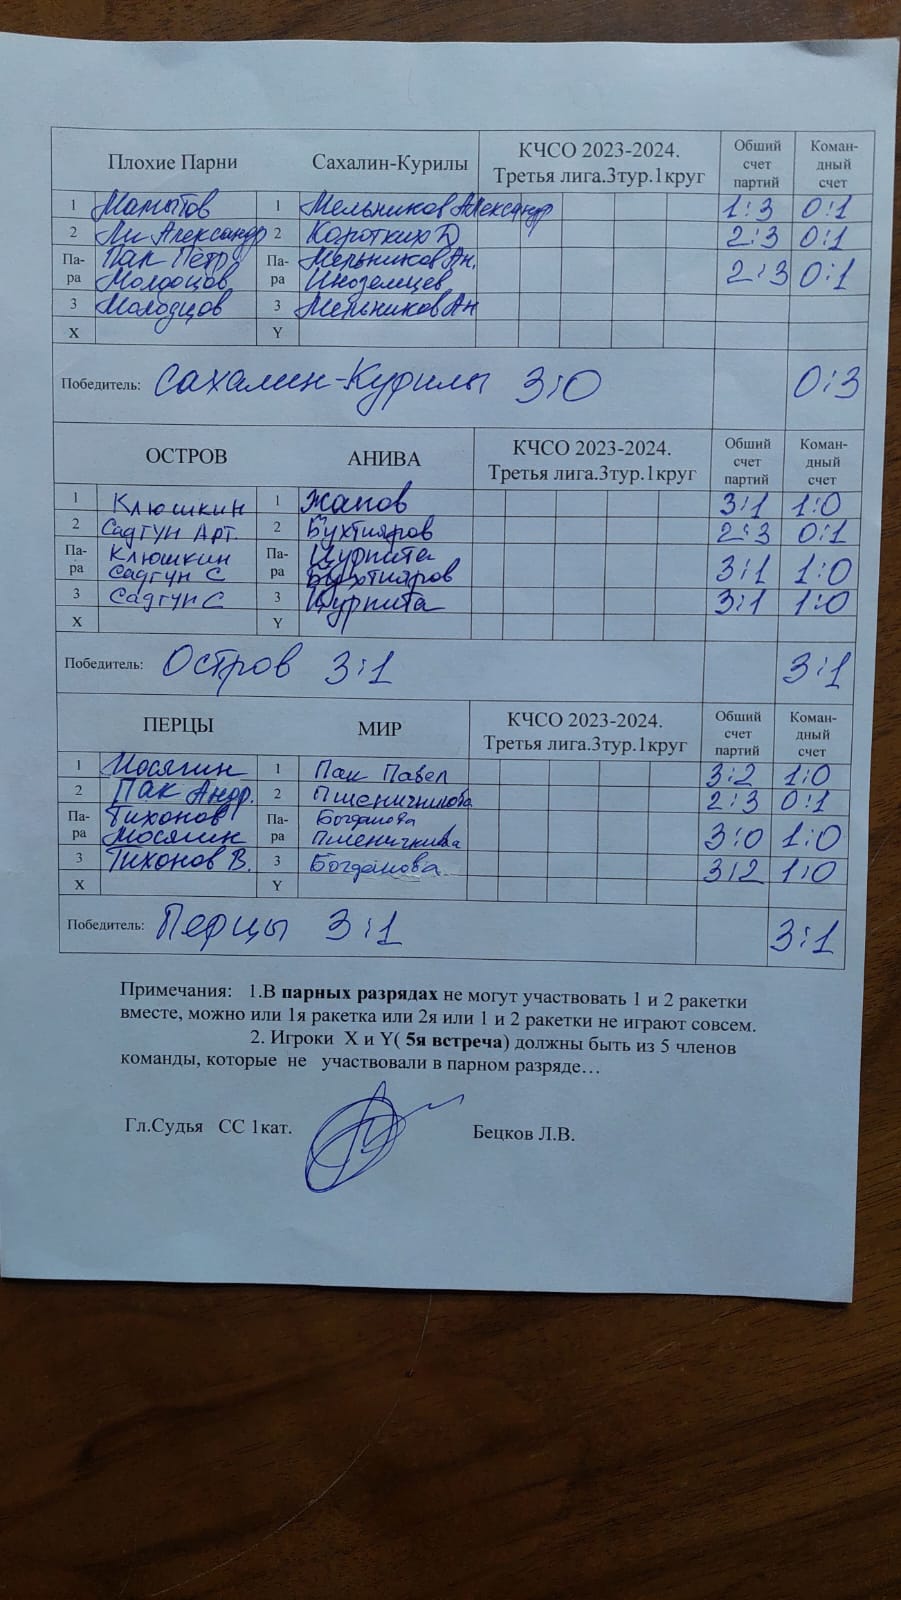 Плохие Парни Сахалин-Курилы КЧСО 2023-2024. Третья лига.3тур.1круг Обший счет партий Коман-дный счет
1 Мамытов 1 Мельников Александр 1:3 0:1
2 Ли Александр 2 Коротких D 2:3 0:1
Па-ра Пак Пётр Па-ра Мельников Ан. 2:3 0:1
Молодцов Иноземцев
3 Молодцов 3 Мельников Ан
X Y
Победитель: Сахалин-Курилы 3:0 0:3
ОСТРОВ АНИВА КЧСО 2023-2024. Третья лига.3тур.1круг Обший счет партий Коман-дный счет
1 Клюшкин 1 Жапов 3:1 1:0
2 Садгун Арт. 2 Бухтияров 2:3 0:1
Па-ра Клюшкин Па-ра Цурпита 3:1 1:0
Садгун С Бухтияров
3 Садгун С 3 Цурпита 3:1 1:0
X Y
Победитель: Остров 3:1 3:1
ПЕРЦЫ МИР КЧСО 2023-2024. Третья лига.3тур.1круг Обший счет партий Коман-дный счет
1 Мосягин 1 Пак Павел 3:2 1:0
2 Пак Андр. 2 Пшеничникова 2:3 0:1
Па-ра Тихонов Па-ра Богданова 3:0 1:0
Мосягин Пшеничникова
3 Тихонов В. 3 Богданова 3:2 1:0
X Y
Победитель: Перцы 3:1 3:1
Примечания: 1.В парных разрядах не могут участвовать 1 и 2 ракетки
вместе, можно или 1я ракетка или 2я или 1 и 2 ракетки не играют совсем.
2. Игроки X и Y( 5я встреча) должны быть из 5 членов
команды, которые не участвовали в парном разряде…
Гл.Судья СС 1кат. Бецков Л.В.